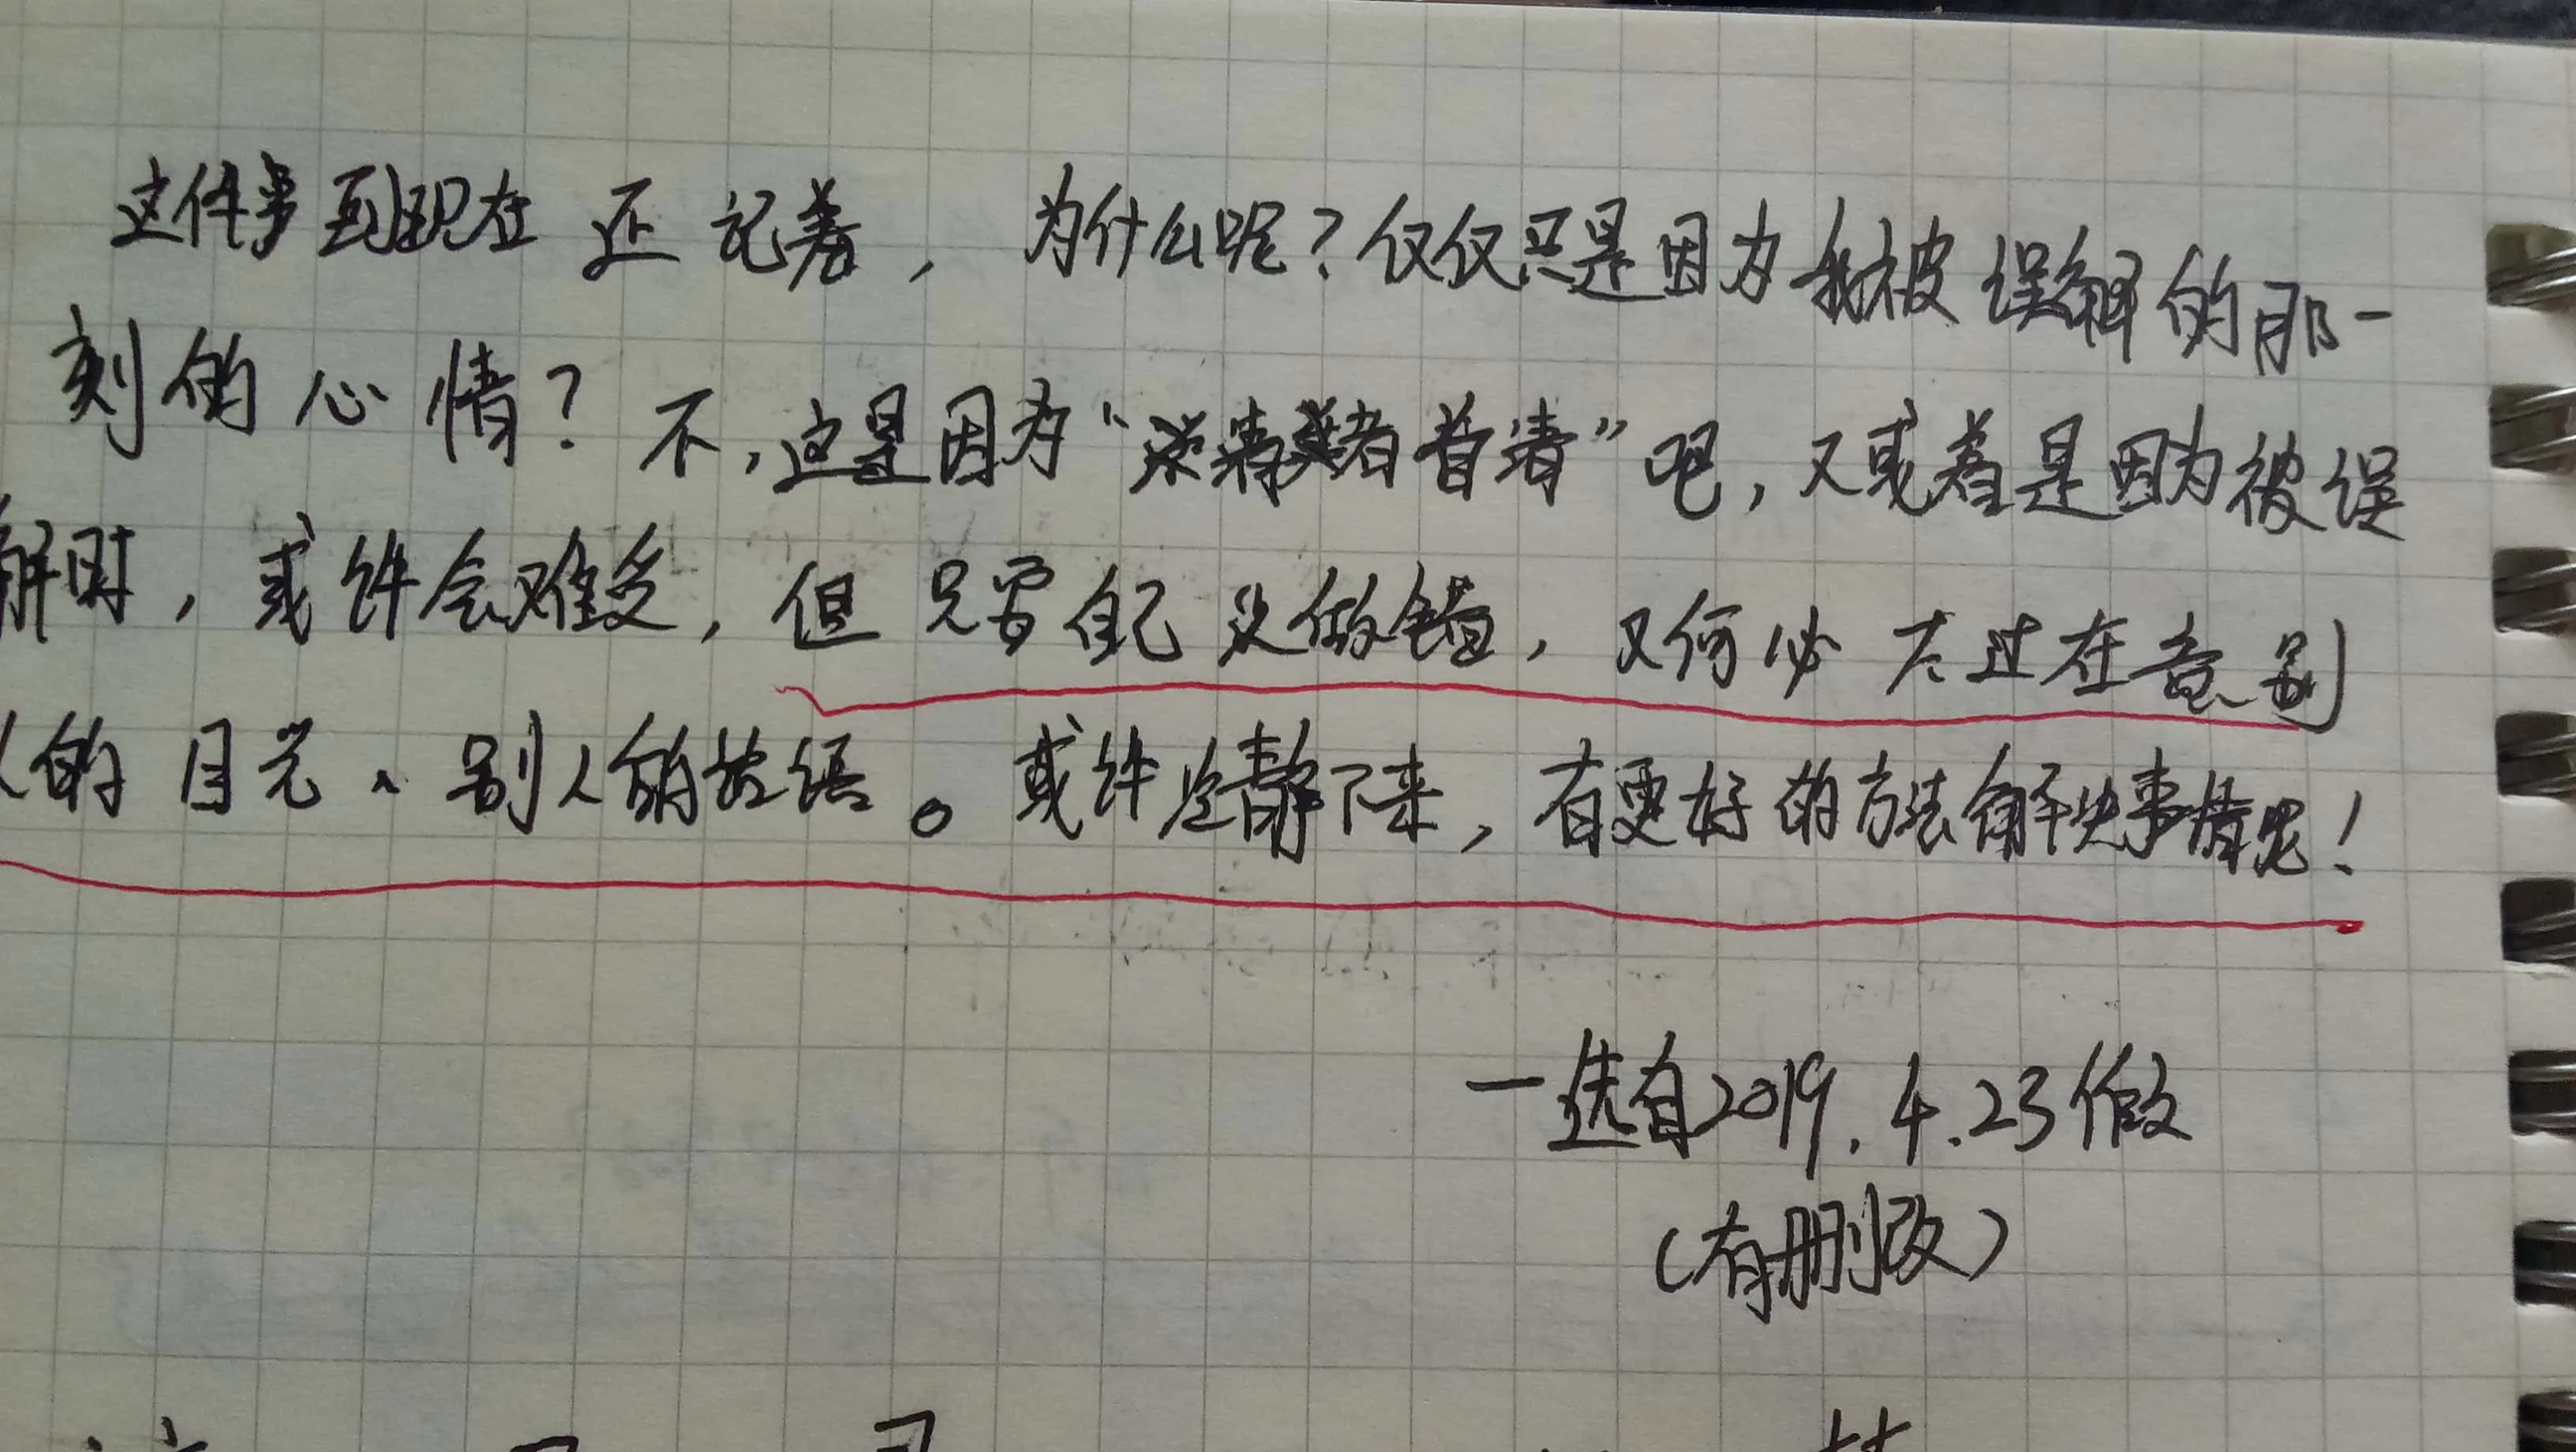 这件事到现在还记着，为什么呢？仅仅只是因为我被误解的那一
刻的心情？不，这是因为“清者自清”吧，又或者是因为被误
解时，或许会难受，但只要自己没做错，又何必太过在意别
人的目光、别人的话语。或许冷静下来，有更好的方法解决事情呢！
一选自2019.4.23做
（有删改）